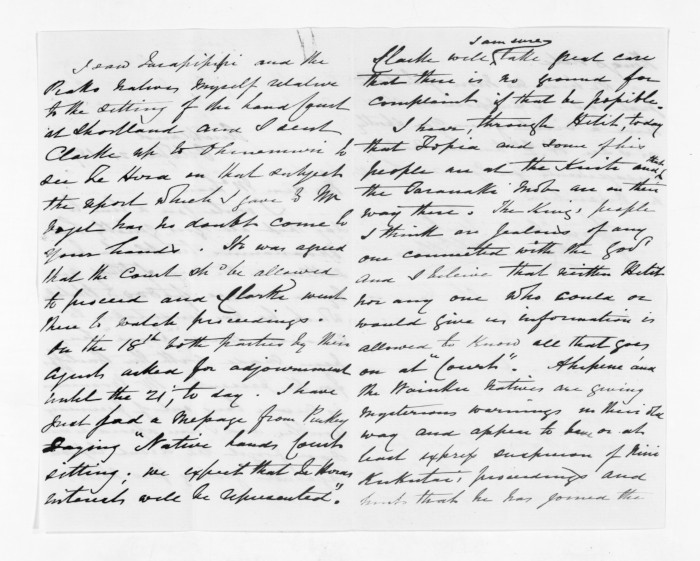 I saw Tarapipipi and the
Piako Natives myself relative
to the sitting of the Land Court
at Shortland and I sent
Clarke up to Ohinemuri to
see Te Hira on that subject
the report which I gave to Mr
Vogel has no doubt come to
your hands. It was agreed
that the Court shd be allowed
to proceed and Clarke went
there to watch proceedings.
On the 18th both parties by their
Agents asked for adjournment
until the 21, to day. I have
just had a message from Puckey
saying "Native Lands Court
sitting; we expect that Te Hiras
interests will be represented".
I am sure
Clarke will take great care
that there is no ground for
complaint if that be possible.
I hear, through Hetit, today
that Topia and some of his
people are at the Kuiti and that
the Taranaki Nat are on their
way there. The King's people
I think are jealous of any
one connected with the Govt
and I believe that neither Hetit
nor any one who could or
would give us information is
allowed to know all that goes
on at "Court". and
the Natives are giving
mysterious warnings in their old
way and appear to have or at
least express suspicion of Wini
Kerikutai's proceedings and
hints that he has joined the